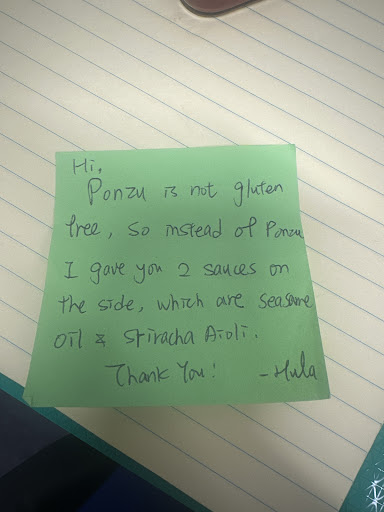 Hi,
Ponzu is not gluten
free, so instead of Ponzu
I gave you 2 sauces on
the side, which are seasame
oil & Sriracha Aioli.
Thank You! - Hula